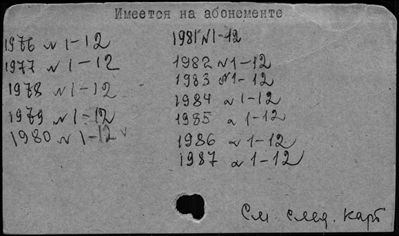 Имеется на абонементе
1976 N 1-12
1977 N 1-12
1978 N 1-12
1979 N 1-12
1980 N 1-12
1981 N 1-12
1982 N 1-12
1983 N 1-12
1984 N 1-12
1985 N 1-12
1986 N 1-12
1987 N 1-12
См. след. карт